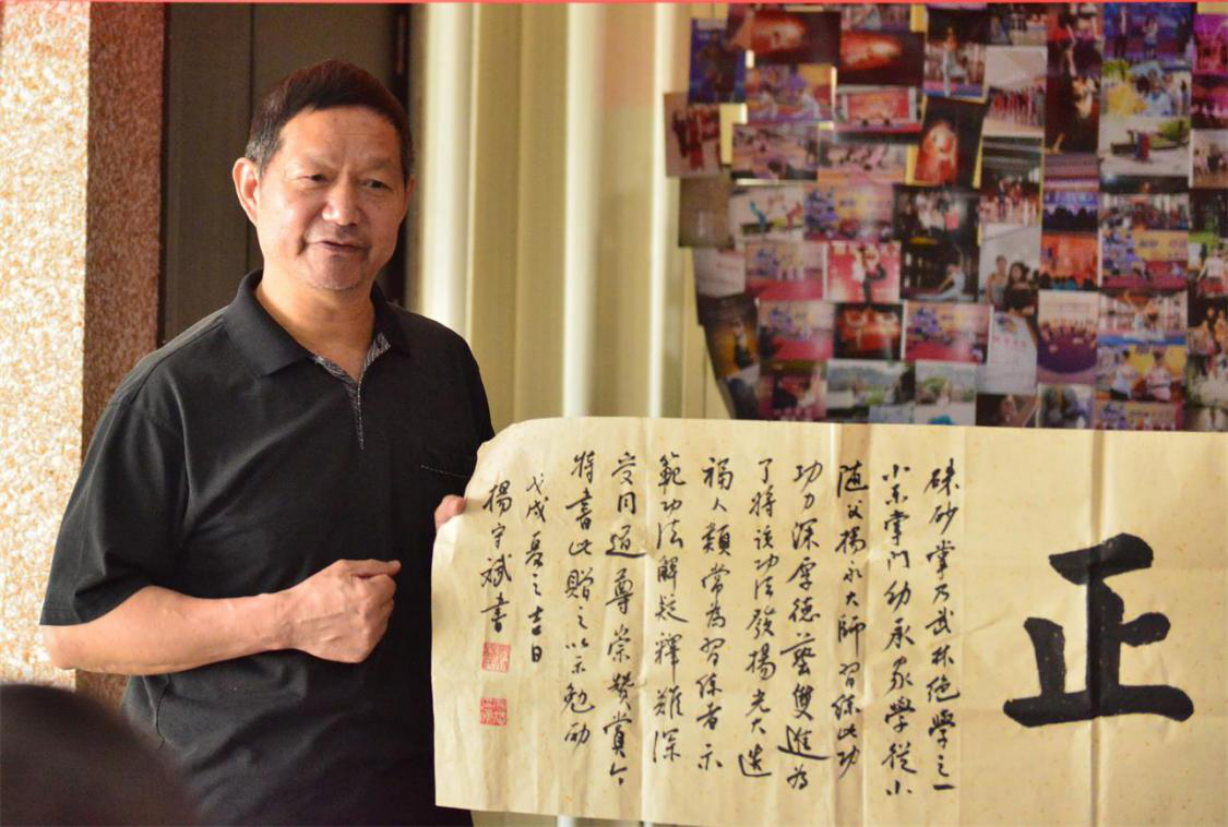 正
硃砂掌乃武林绝學之一
小东掌門幼承家學從小
随父楊永大師習练此功
功力深厚德藝雙進为
了將该功法發揚光大造
福人類常為習练者示
範功法解疑釋難深
受同道尊崇赞賞今
特書此贈之以示勉励
戊戌夏之吉日
楊守斌書